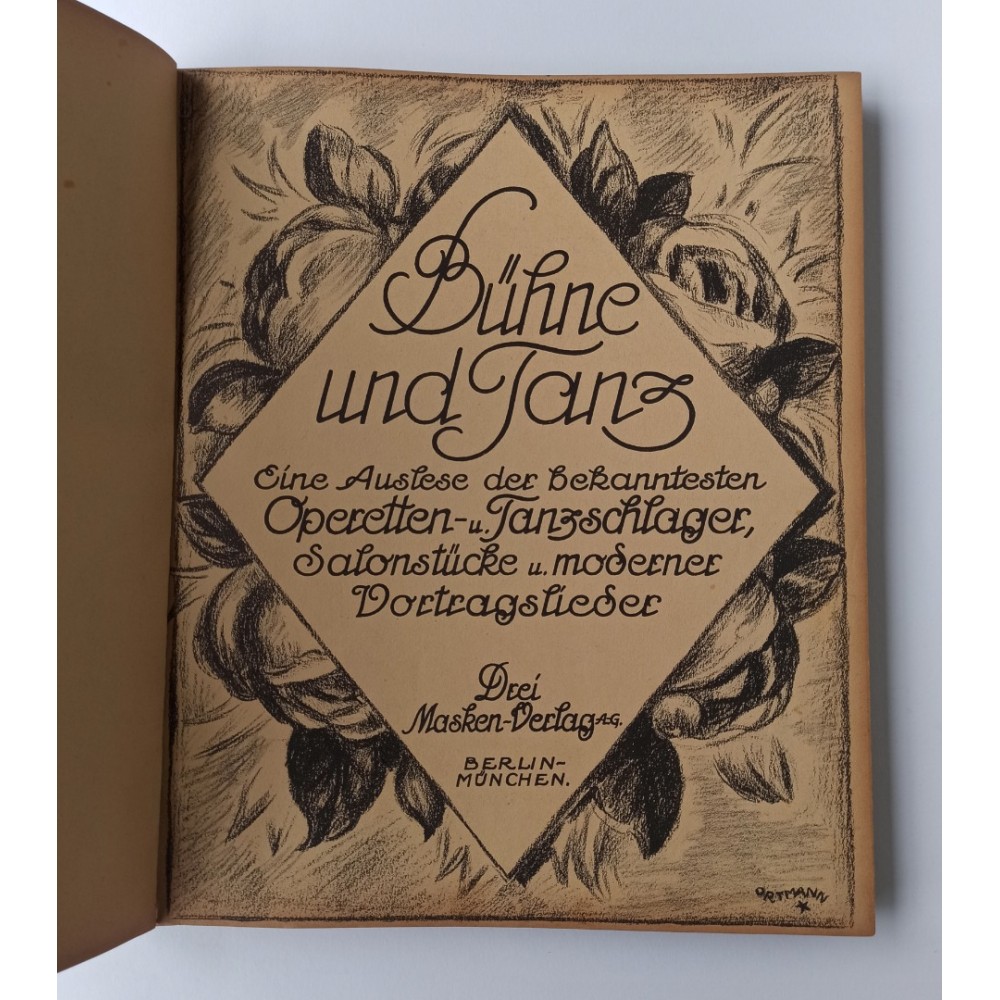 Bühne
und Tanz
Eine Auslese der bekanntesten
Operetten- u. Tanzschlager,
Salonstücke u. moderner
Vortragslieder
Drei
Masken-Verlag A.G.
BERLIN-
MÜNCHEN.
ORTMANN